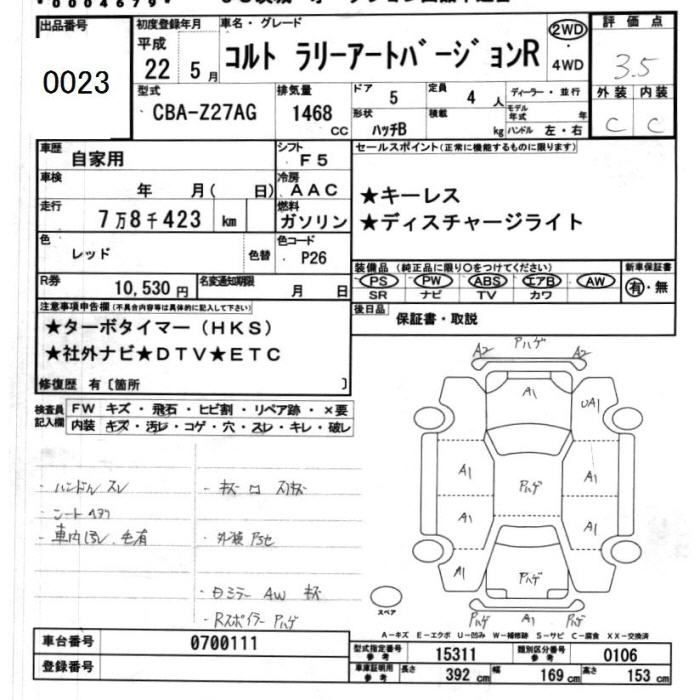 出品番号
0023
初度登録年月
平成
22 5月
車名・グレード
コルト ラリーアートバージョンR
2WD
・
4WD
評価点
3.5
外装 内装
C C
型式
CBA-Z27AG
排気量
1468
CC
ドア
5
定員
4
人
形状
ハッチB
積載
kg
ディーラー・並行
モデル
年式
年
ハンドル 左・右
車歴
自家用
シフト
F5
車検
年 月( 日)
冷房
AAC
走行
7万8千423 km
燃料
ガソリン
色
レッド
色替
色コード
P26
R券
10,530円
名変通知期限
月 日
セールスポイント(正常に機能するものに限ります)
★キーレス
★ディスチャージライト
装備品(純正品に限り○をつけてください)
PS PW ABS エアB AW
SR ナビ TV カワ
新車保証書
有・無
後日品
保証書・取説
注意事項申告欄(不具合内容等は具体的に記入して下さい)
★ターボタイマー(HKS)
★社外ナビ★DTV★ETC
修復歴 有〔箇所 〕
検査員
記入欄
FW キズ・飛石・ヒビ割・リペア跡・×要
内装 キズ・汚レ・コゲ・穴・スレ・キレ・破レ
・ハンドル スレ
・車内 毛有
・日ミラー AW
・Rスポイラー アハゲ
A2 アハゲ A2
A1
UA1
A1 A1
アハゲ
A1 A1
A1 アハゲ
アハゲ A1 アハゲ
スペア
A－キズ E－エクボ U－凹み W－補修跡 S－サビ C－腐食 XX－交換済
車台番号
0700111
登録番号
型式指定番号
参考
15311
類別区分番号
参考
0106
車庫証明用
参考
長さ
392 cm
幅
169 cm
高さ
153 cm